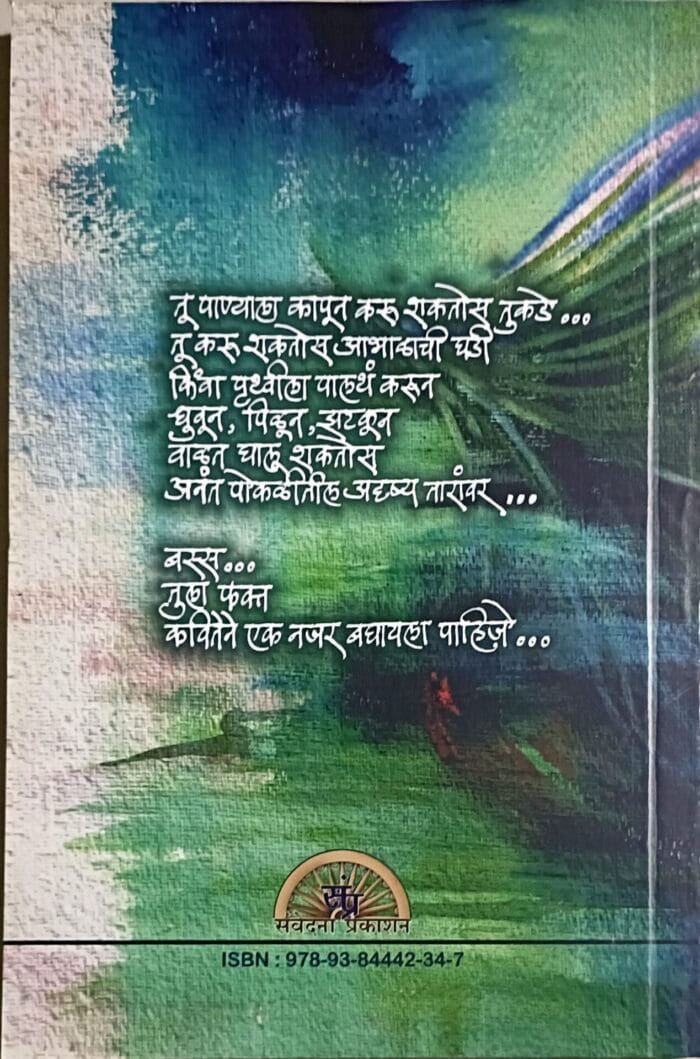 तू पाण्याला कापून करू शकतोस तुकडे...
तू करू शकतोस आभाळाची घडी
किंवा पृथ्वीला पालथं करून
धुवून, पिळून, झटकून
वाळत घालू शकतोस
अनंत पोकळीतील अदृष्य तारांवर ...
बस्स...
तुला फक्त
कवितेने एक नजर बघायला पाहिजे...
संप्र
संवेदना प्रकाशन
ISBN : 978-93-84442-34-7